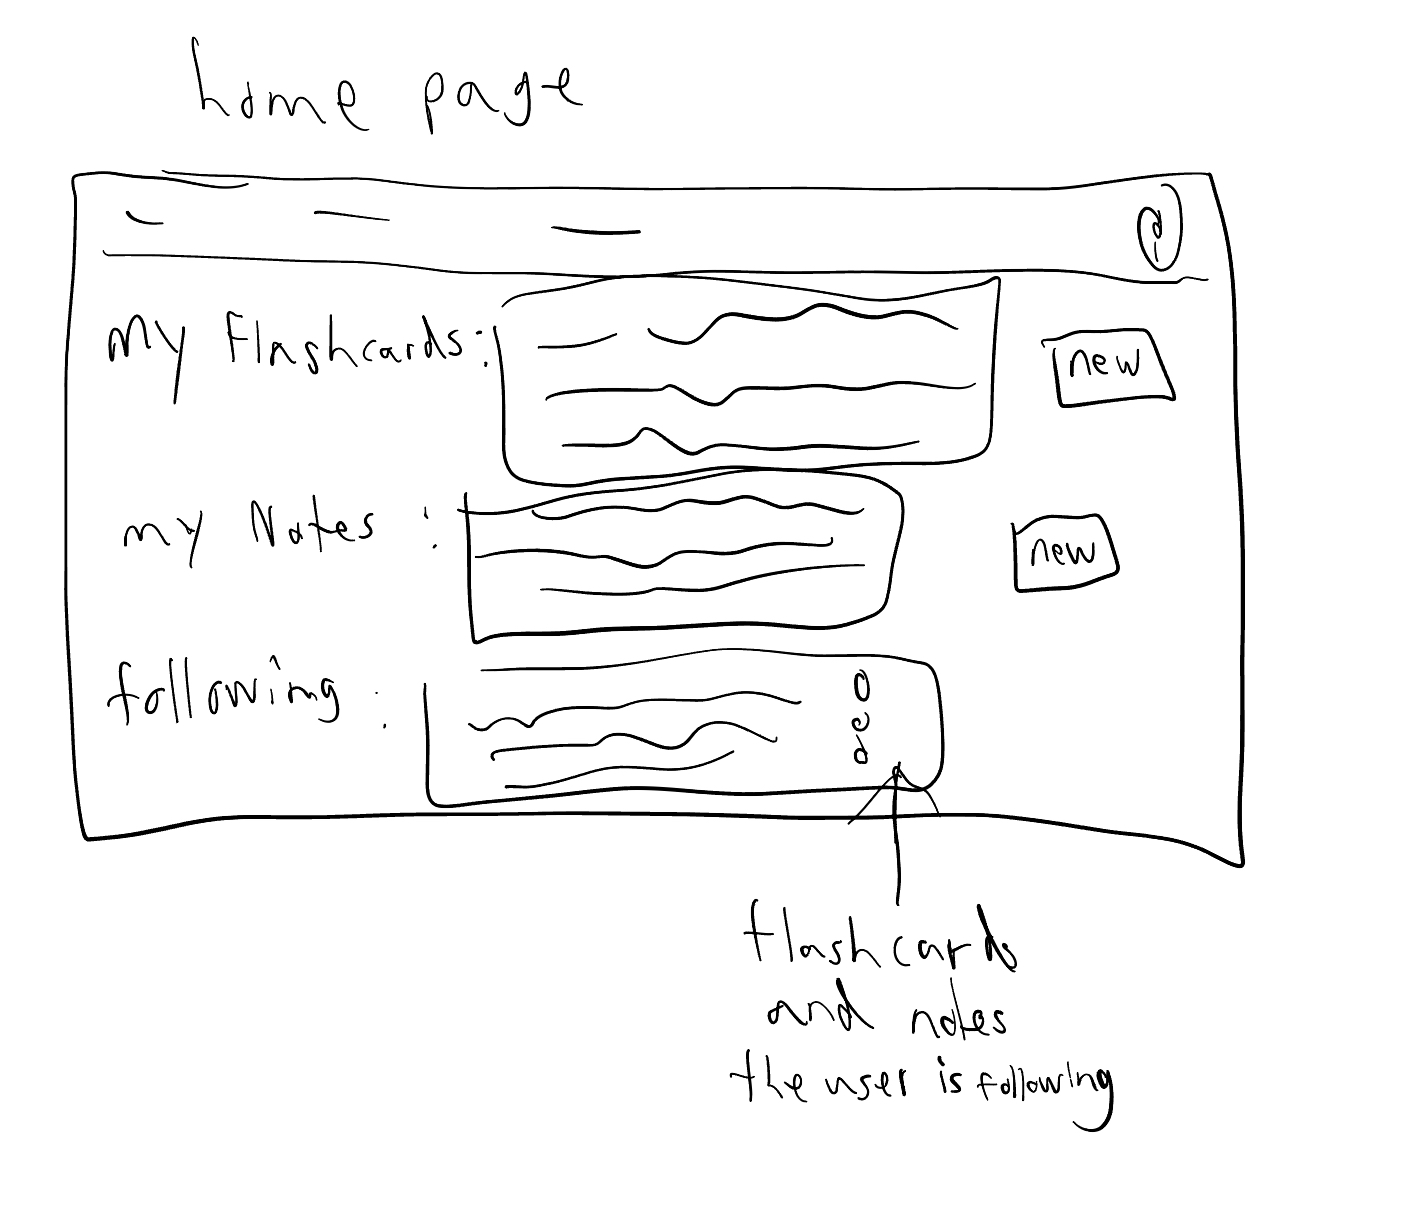 home page
my Flashcards:
new
my Notes :
new
following :
flashcards
and notes
the user is following